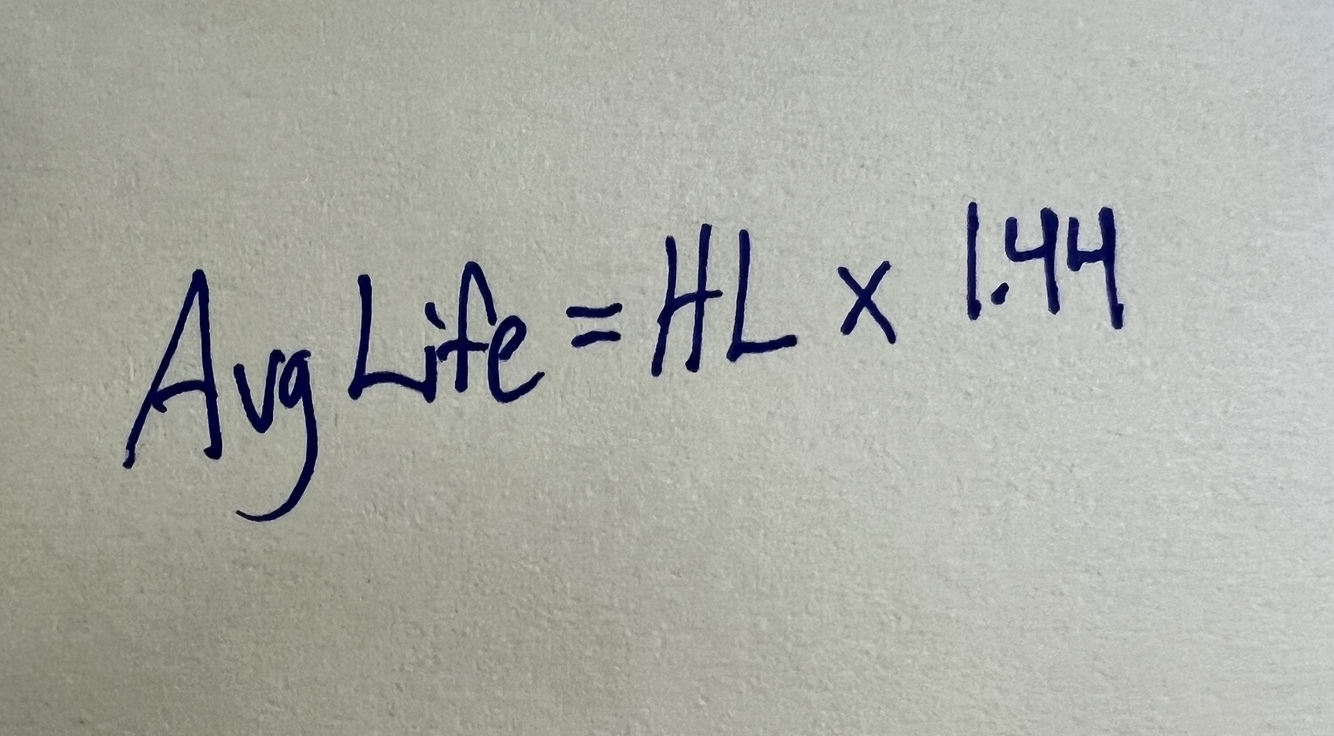 Avg Life = HL x 1.44